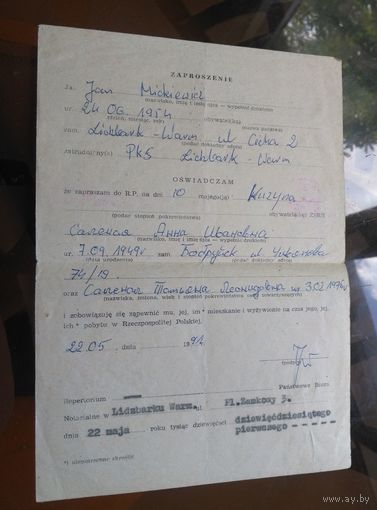 ZAPROSZENIE
Ja, Jan Mickiewicz
(nazwisko, imię i imię ojca — wypełnić drukiem)
ur. 24 06. 1954 obywatel(ka)
(dzień, miesiąc, rok) (nazwa państwa)
zam. Lidzbark-Warm ul Cicha 2
(podać dokładny adres)
zatrudniony(a) PKS Lidzbark-Warm
OŚWIADCZAM
że zapraszam do R.P. na dni 10 mojego(ją) Kuzyna
(podać stopień pokrewieństwa) obywatel(kę) ZSRR
Саленая Анна Ивановна
(nazwisko, imię i imię ojca — wypełnić drukiem)
ur. 7.09.1949r zam. Бобруйск ul.
(data urodzenia) (podać dokładny adres)
74/19
oraz Саленая Татьяна Леонидовна ur 3.02.1976r
(nazwiska, imiona, wiek i stopień pokrewieństwa osób towarzyszących)
i zobowiązuję się zapewnić mu, jej, im* mieszkanie i wyżywienie na czas jego, jej,
ich* pobytu w Rzeczypospolitej Polskiej.
22.05, dnia 1991r
Repertorium —
Państwowe Biuro
Notarialne w Lidzbarku Warm. ul Pl.Zamkowy 3.
dnia 22 maja roku tysiąc dziewięćset dziewięćdziesiątego
pierwszego - - - - -
*) niepotrzebne skreślić
https://www.ay.by